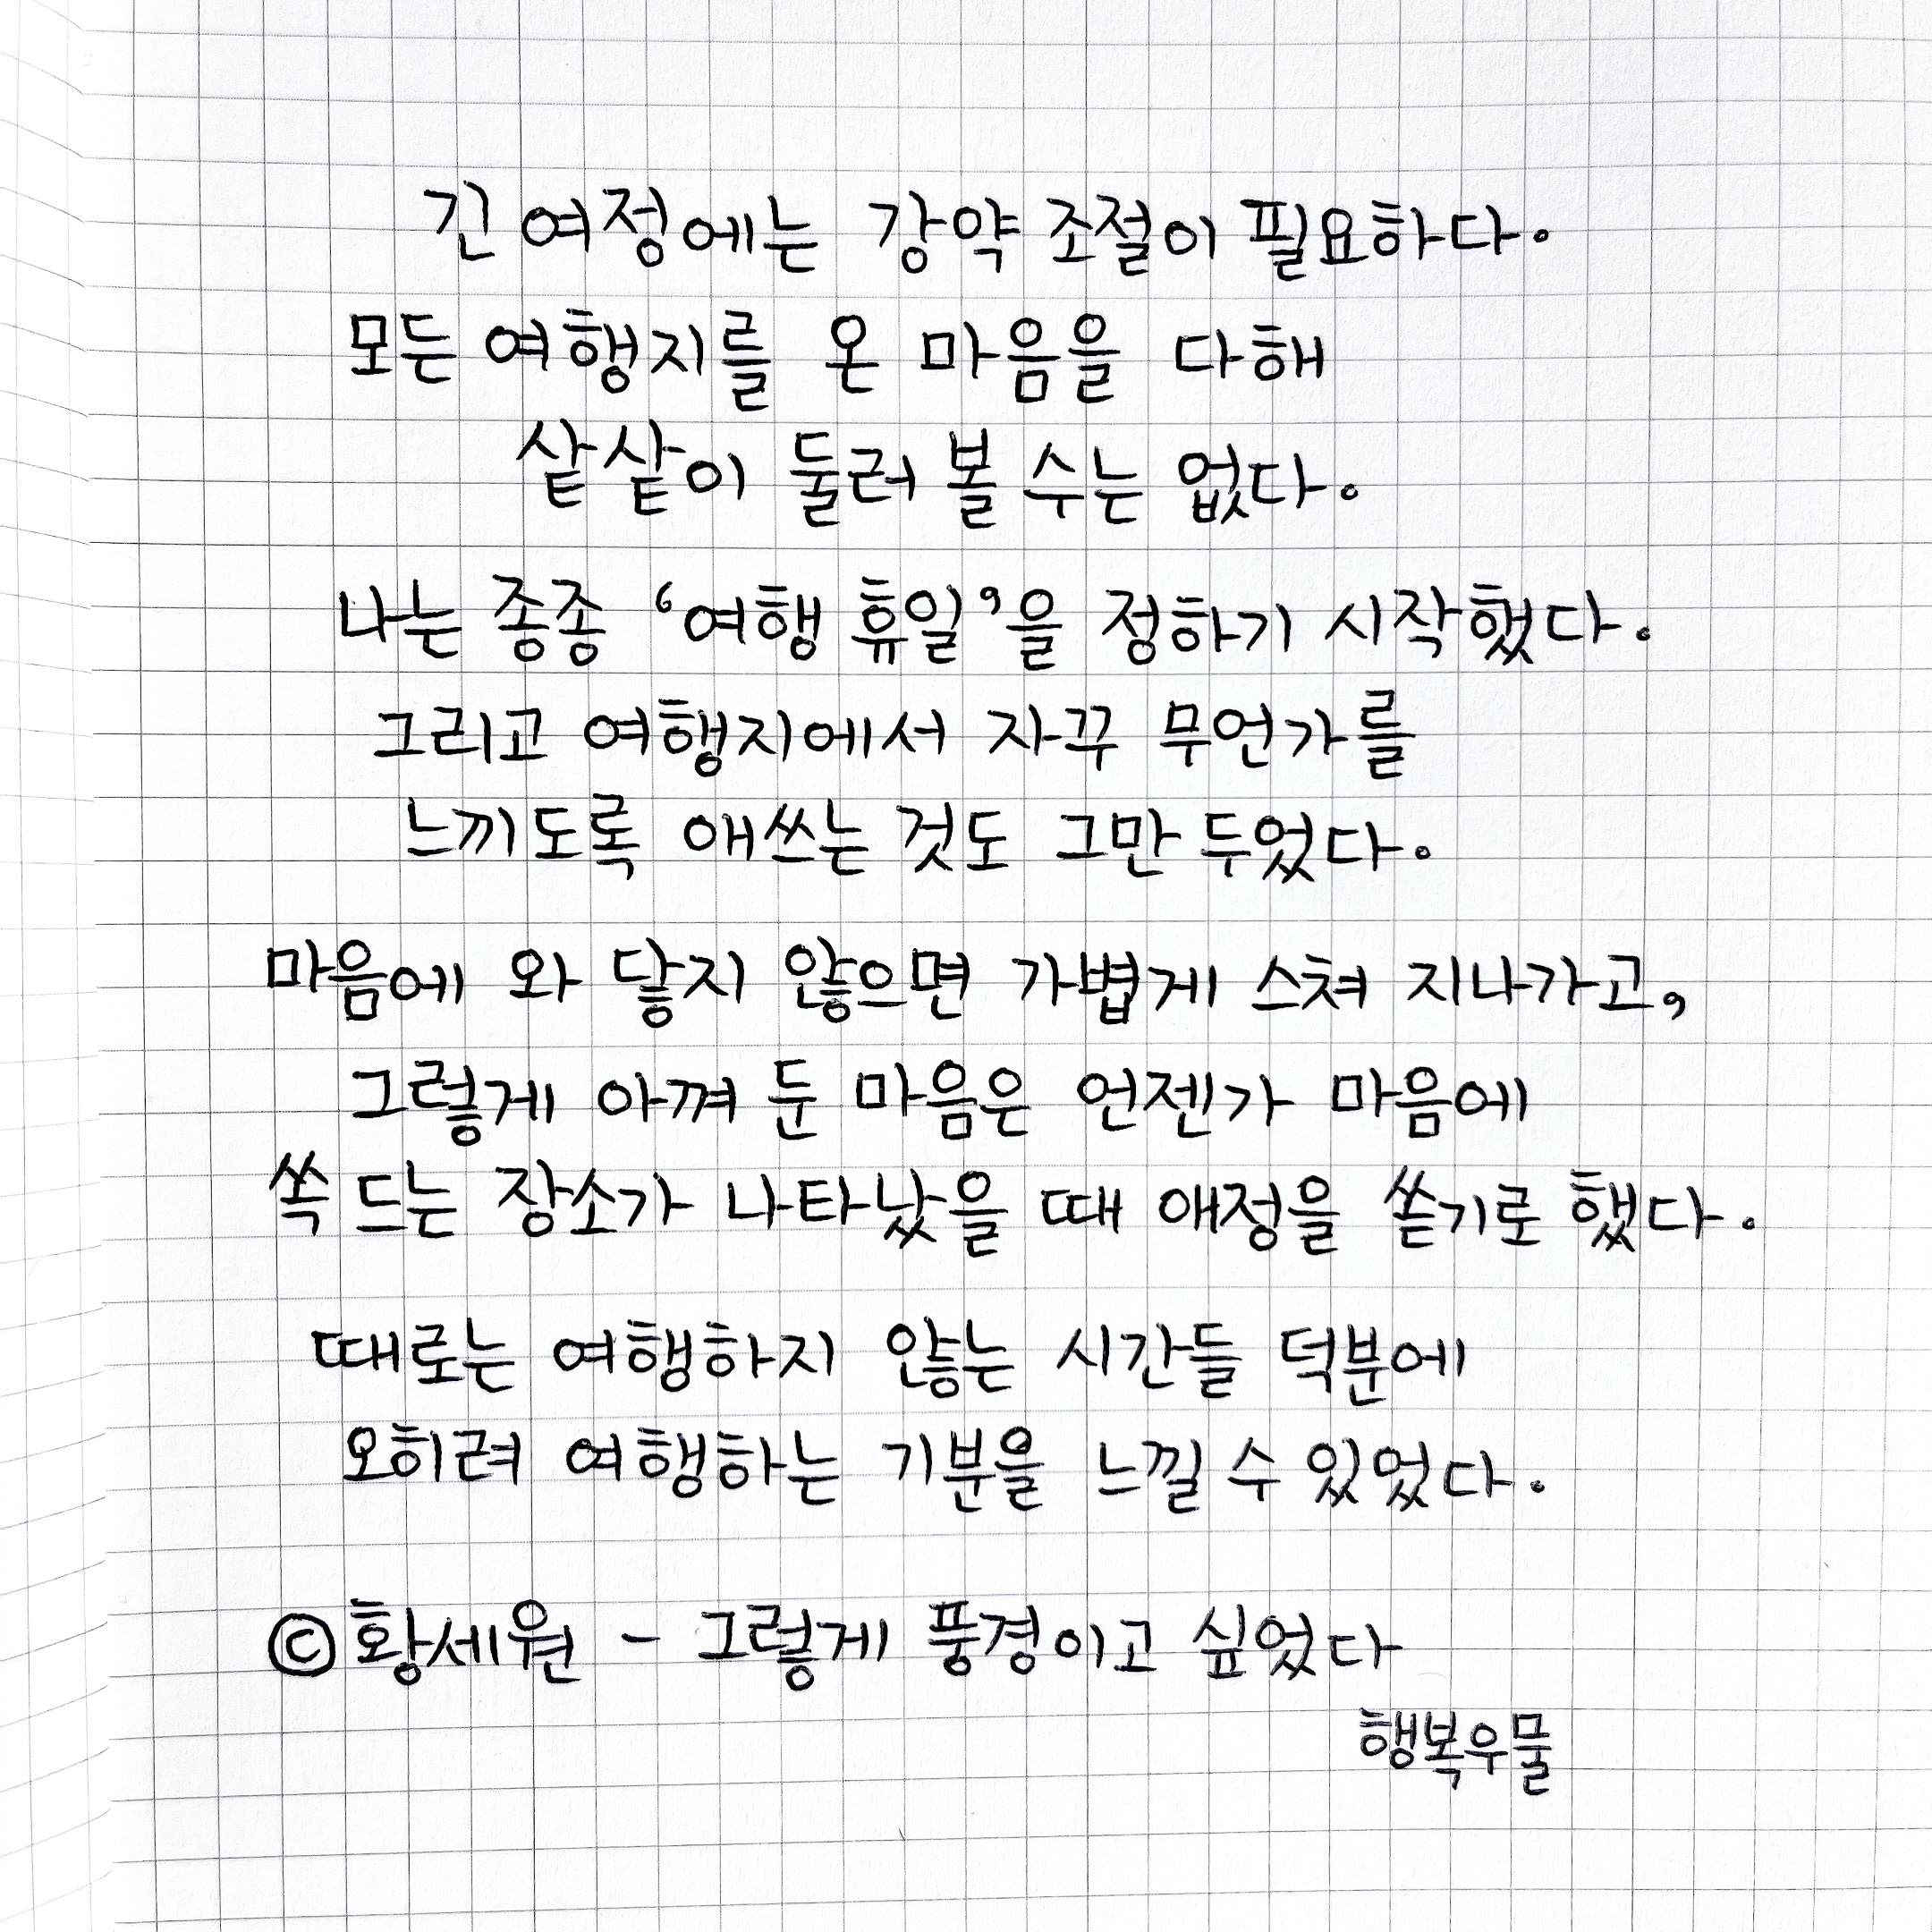 긴 여정에는 강약 조절이 필요하다.
모든 여행지를 온 마음을 다해
샅샅이 둘러 볼 수는 없다.
나는 종종 '여행 휴일'을 정하기 시작했다.
그리고 여행지에서 자꾸 무언가를
느끼도록 애쓰는 것도 그만 두었다.
마음에 와 닿지 않으면 가볍게 스쳐 지나가고,
그렇게 아껴 둔 마음은 언젠가 마음에
쏙 드는 장소가 나타났을 때 애정을 쏟기로 했다.
때로는 여행하지 않는 시간들 덕분에
오히려 여행하는 기분을 느낄 수 있었다.
©황세원 - 그렇게 풍경이고 싶었다
행복우물